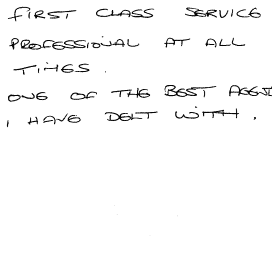 FIRST CLASS SERVICE
PROFESSIONAL AT ALL
TIMES.
ONE OF THE BEST
I HAVE DELT WITH.